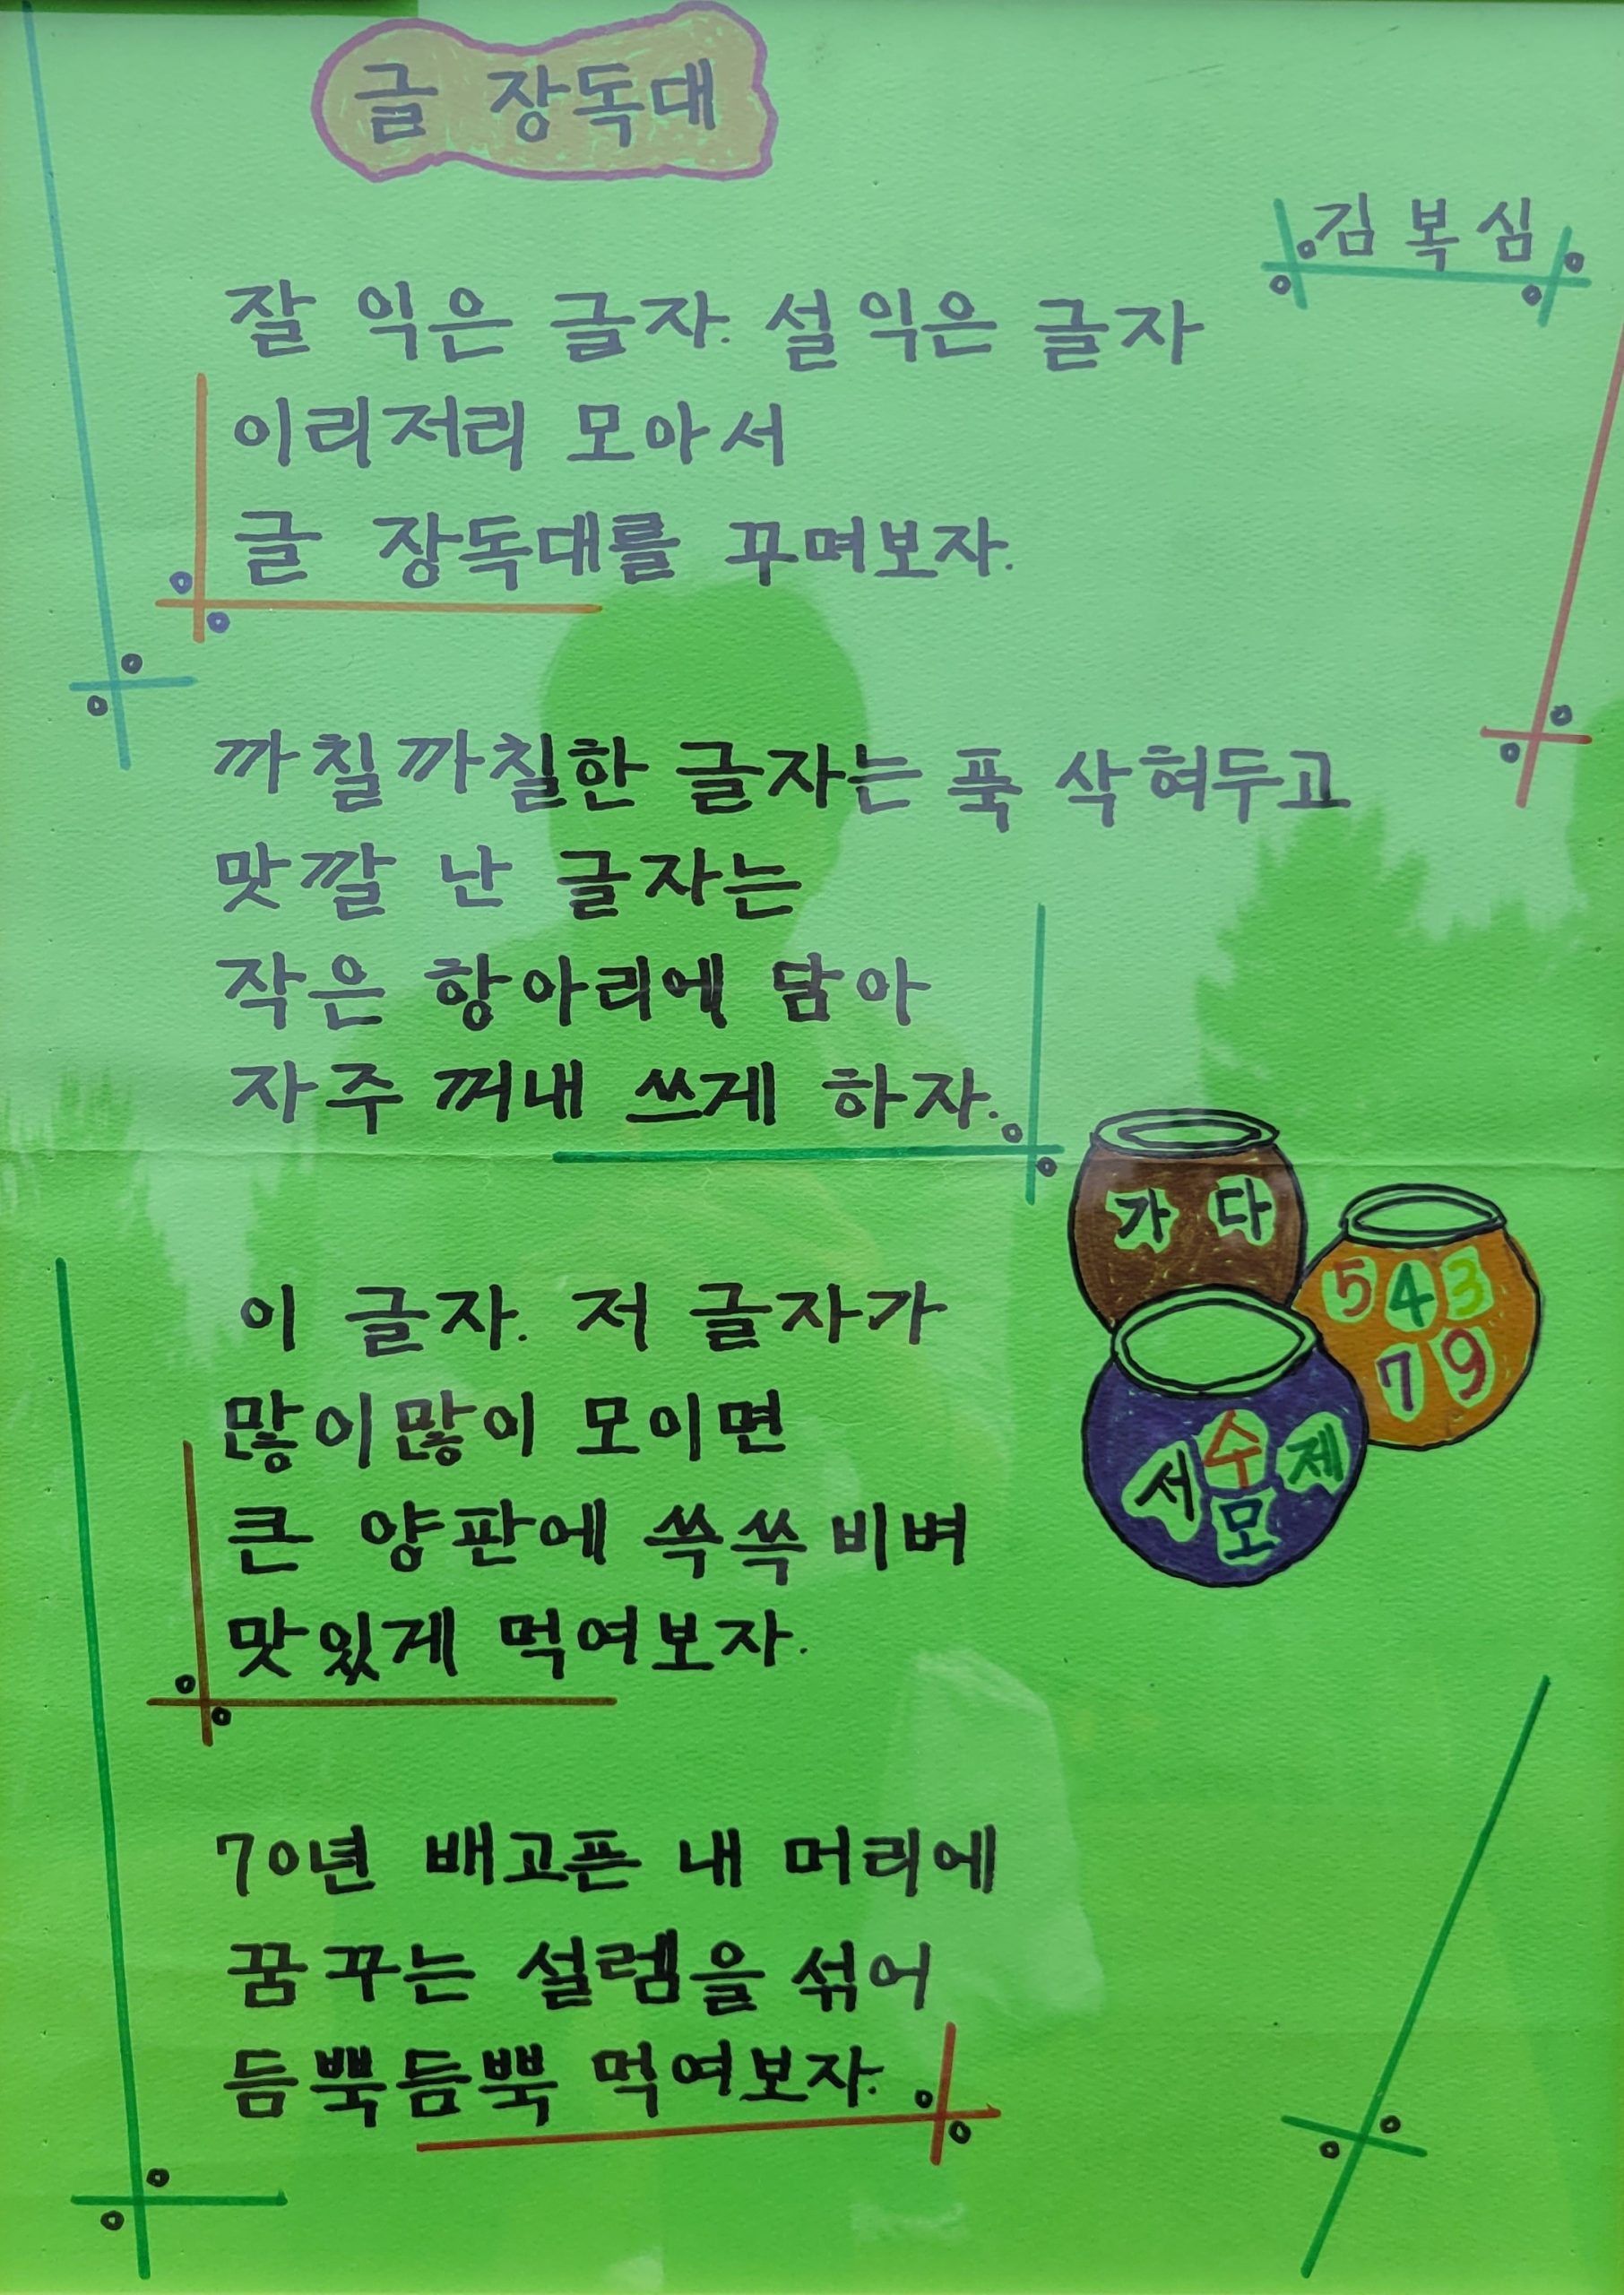 글 장독대
김복심
잘 익은 글자. 설익은 글자
이리저리 모아서
글 장독대를 꾸며보자.
까칠까칠한 글자는 푹 삭혀두고
맛깔 난 글자는
작은 항아리에 담아
자주 꺼내 쓰게 하자.
가 다
5 4 3
7 9
이 글자. 저 글자가
많이많이 모이면
서 수 제
모
큰 양판에 쓱쓱 비벼
맛있게 먹여보자.
70년 배고픈 내 머리에
꿈꾸는 설렘을 섞어
듬뿍듬뿍 먹여보자.